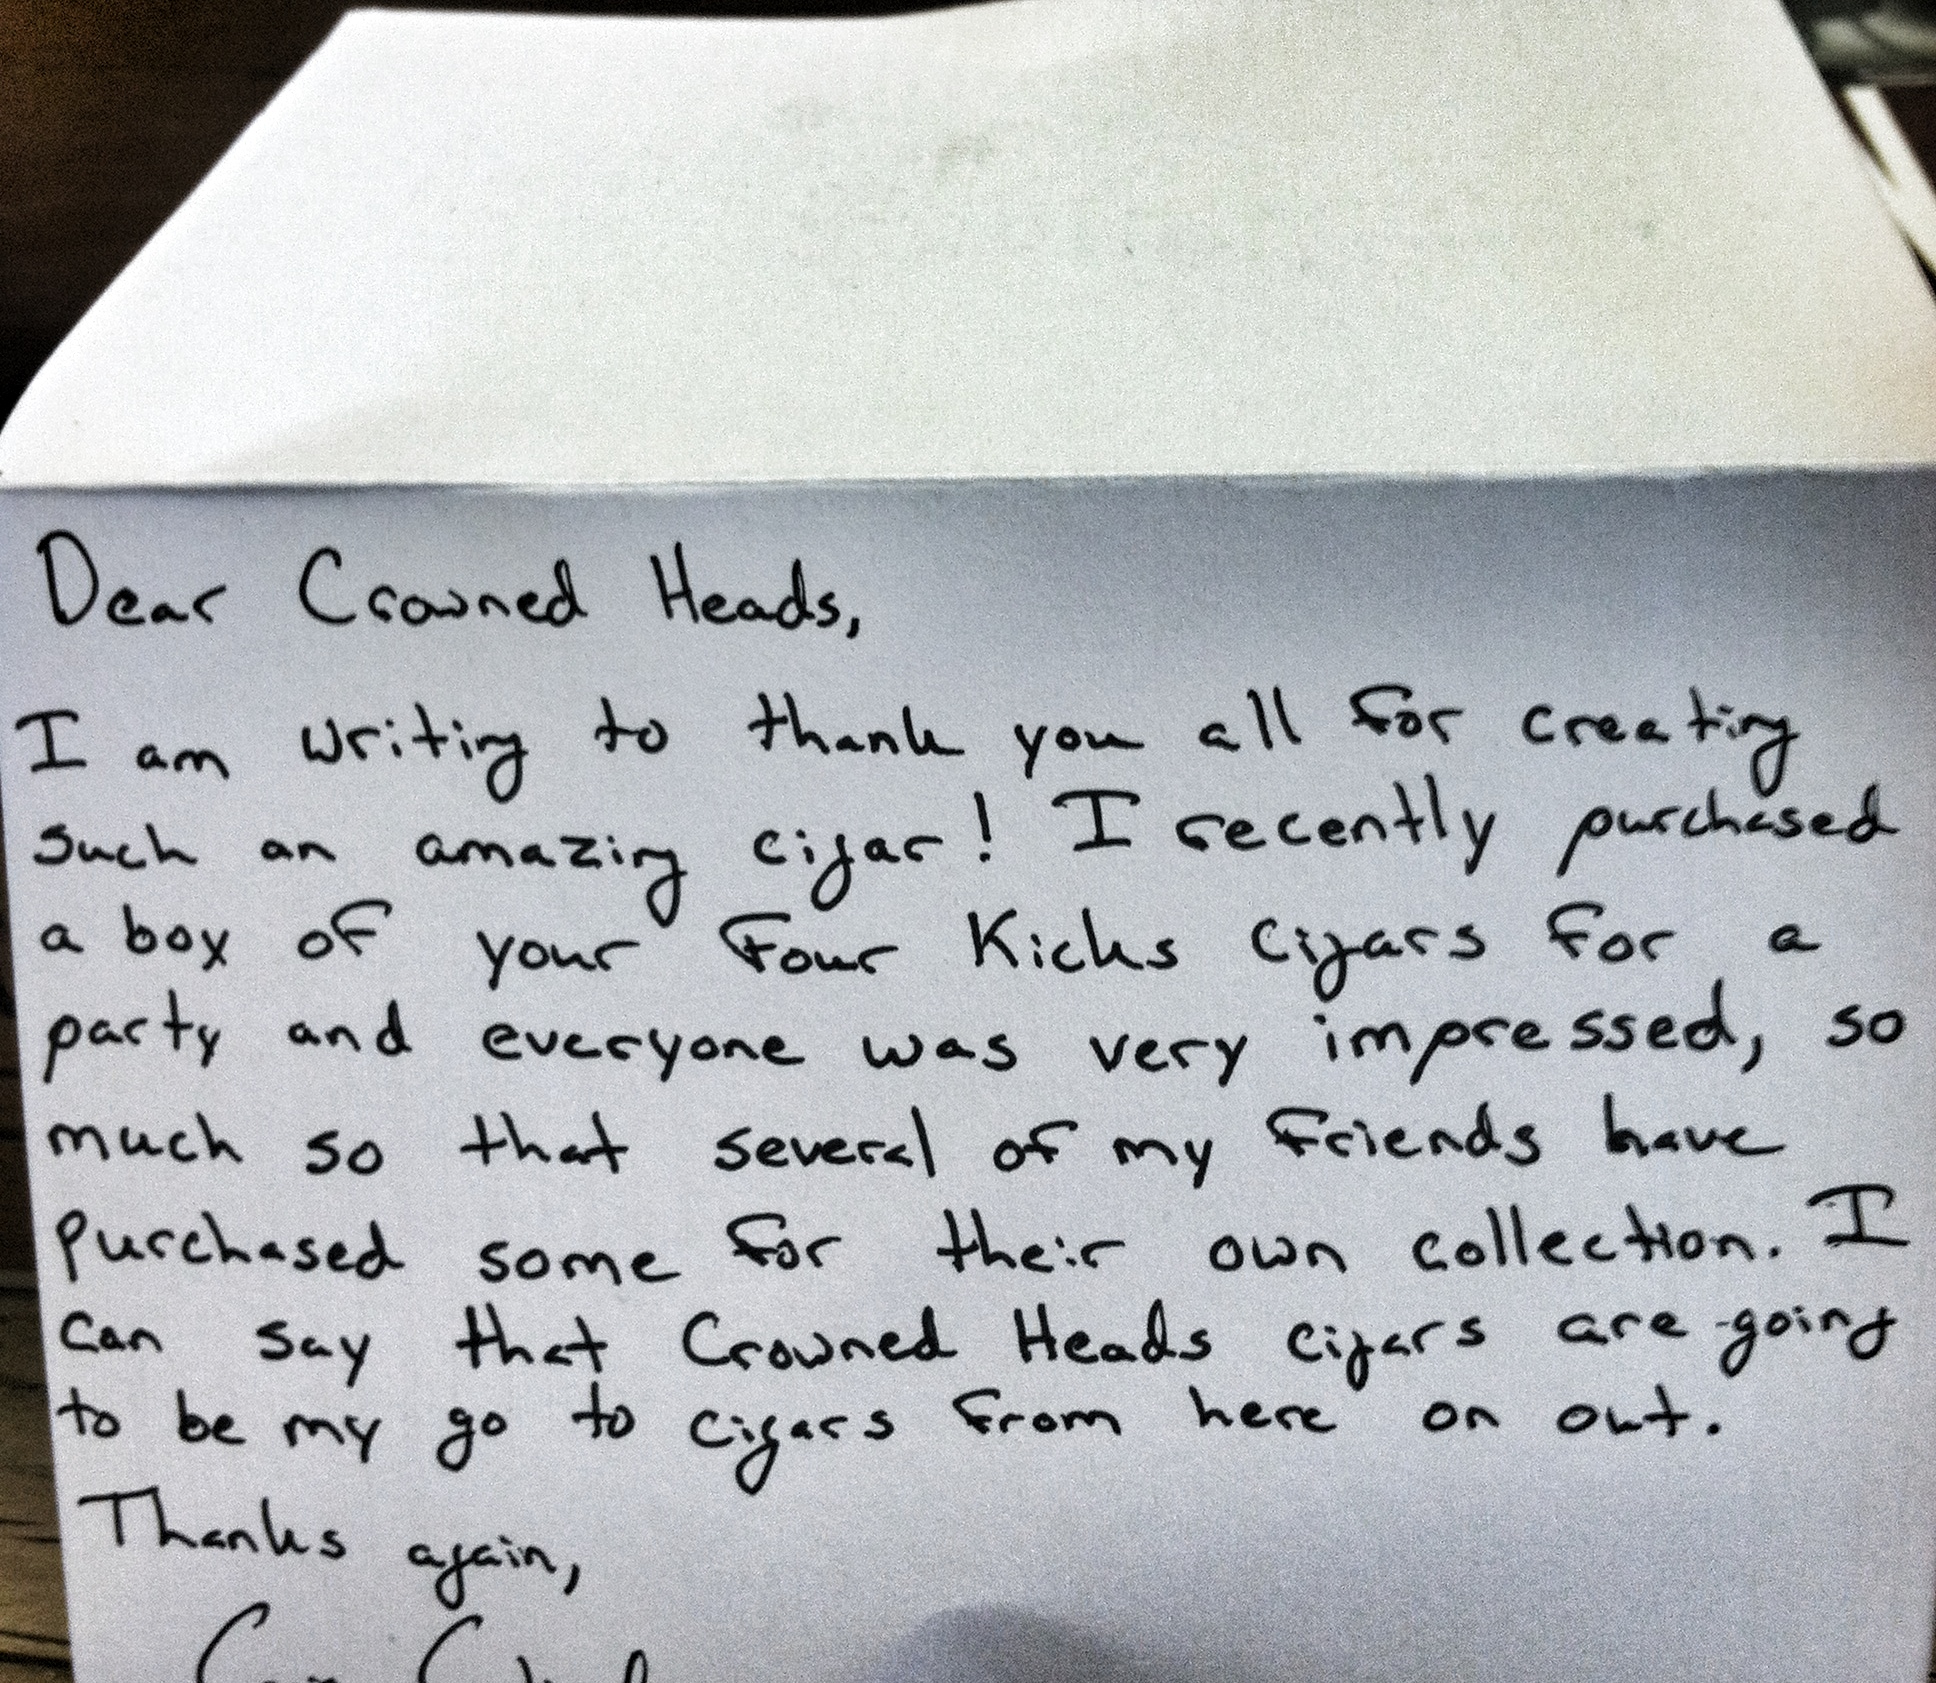 Dear Crowned Heads,
I am writing to thank you all for creating
such an amazing cigar! I recently purchased
a box of your Four Kicks cigars for a
party and everyone was very impressed, so
much so that several of my friends have
purchased some for their own collection. I
can say that Crowned Heads cigars are going
to be my go to cigars from here on out.
Thanks again,